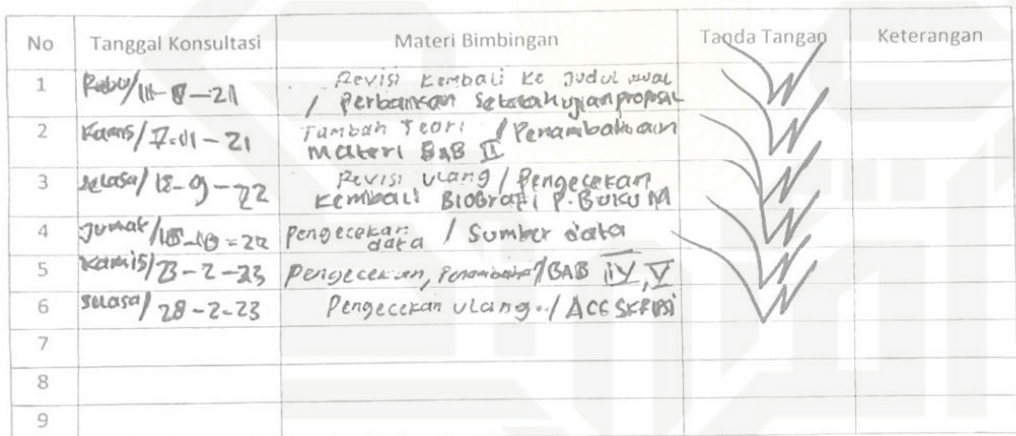 No Tanggal Konsultasi Materi Bimbingan Tanda Tangan Keterangan
1 Rabu/ Revisi Kembali Ke Judul awal
/ Perbankan Setelah ujian proposal
2 Kamis/ - 21 Tambah Teori / Penambahan
Materi BAB II
3 selasa/ - 9 - 22 Revisi ulang / Pengecekan
Kembali Biografi P. Buku M
4 Jumat/ - 22 Pengecekan / Sumber data
data
5 Kamis/ 23 - 2 - 23 pengecekan, / BAB IV, V
6 selasa/ 28 - 2 - 23 Pengecekan ulang / ACC SKRIPSI
7
8
9